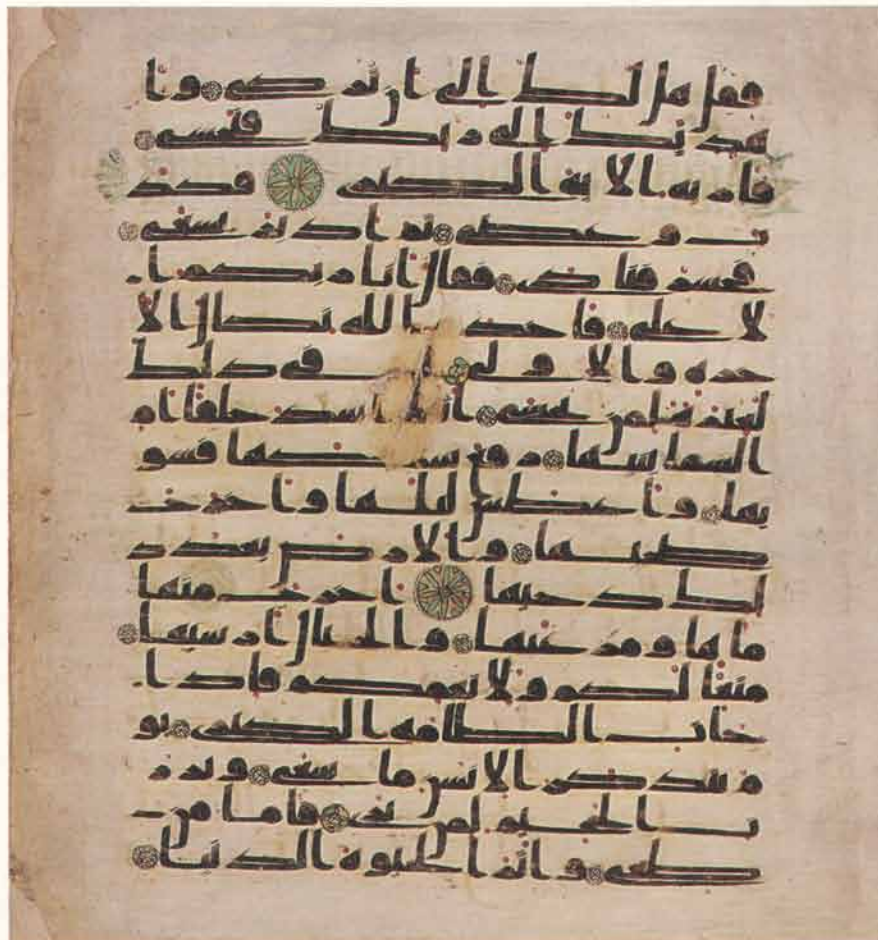 فقل هل لك الى ان تزكى وا
هديك الى ربك فتخشى
فاريه الاية الكبرى فكذ
ب وعصى ثم ادبر يسعى
فحشر فنادى فقال انا ربكم ا
لا على فاخذه الله نكال الا
خرة والاولى ان في ذلك
لعبرة لمن يخشى انتم اشد خلقا ام
السما بنيها رفع سمكها فسو
يها واغطش ليلها واخرج
ضحيها والارض بعد ذ
لك دحيها اخرج منها
ما ها ومرعيها والجبال ارسيها
متعا لكم ولانعمكم فاذا
جات الطامة الكبرى يو
م يتذكر الانسن ما سعى وبرز
ت الجحيم لمن يرى فاما من
طغى واثر الحيوة الدنيا